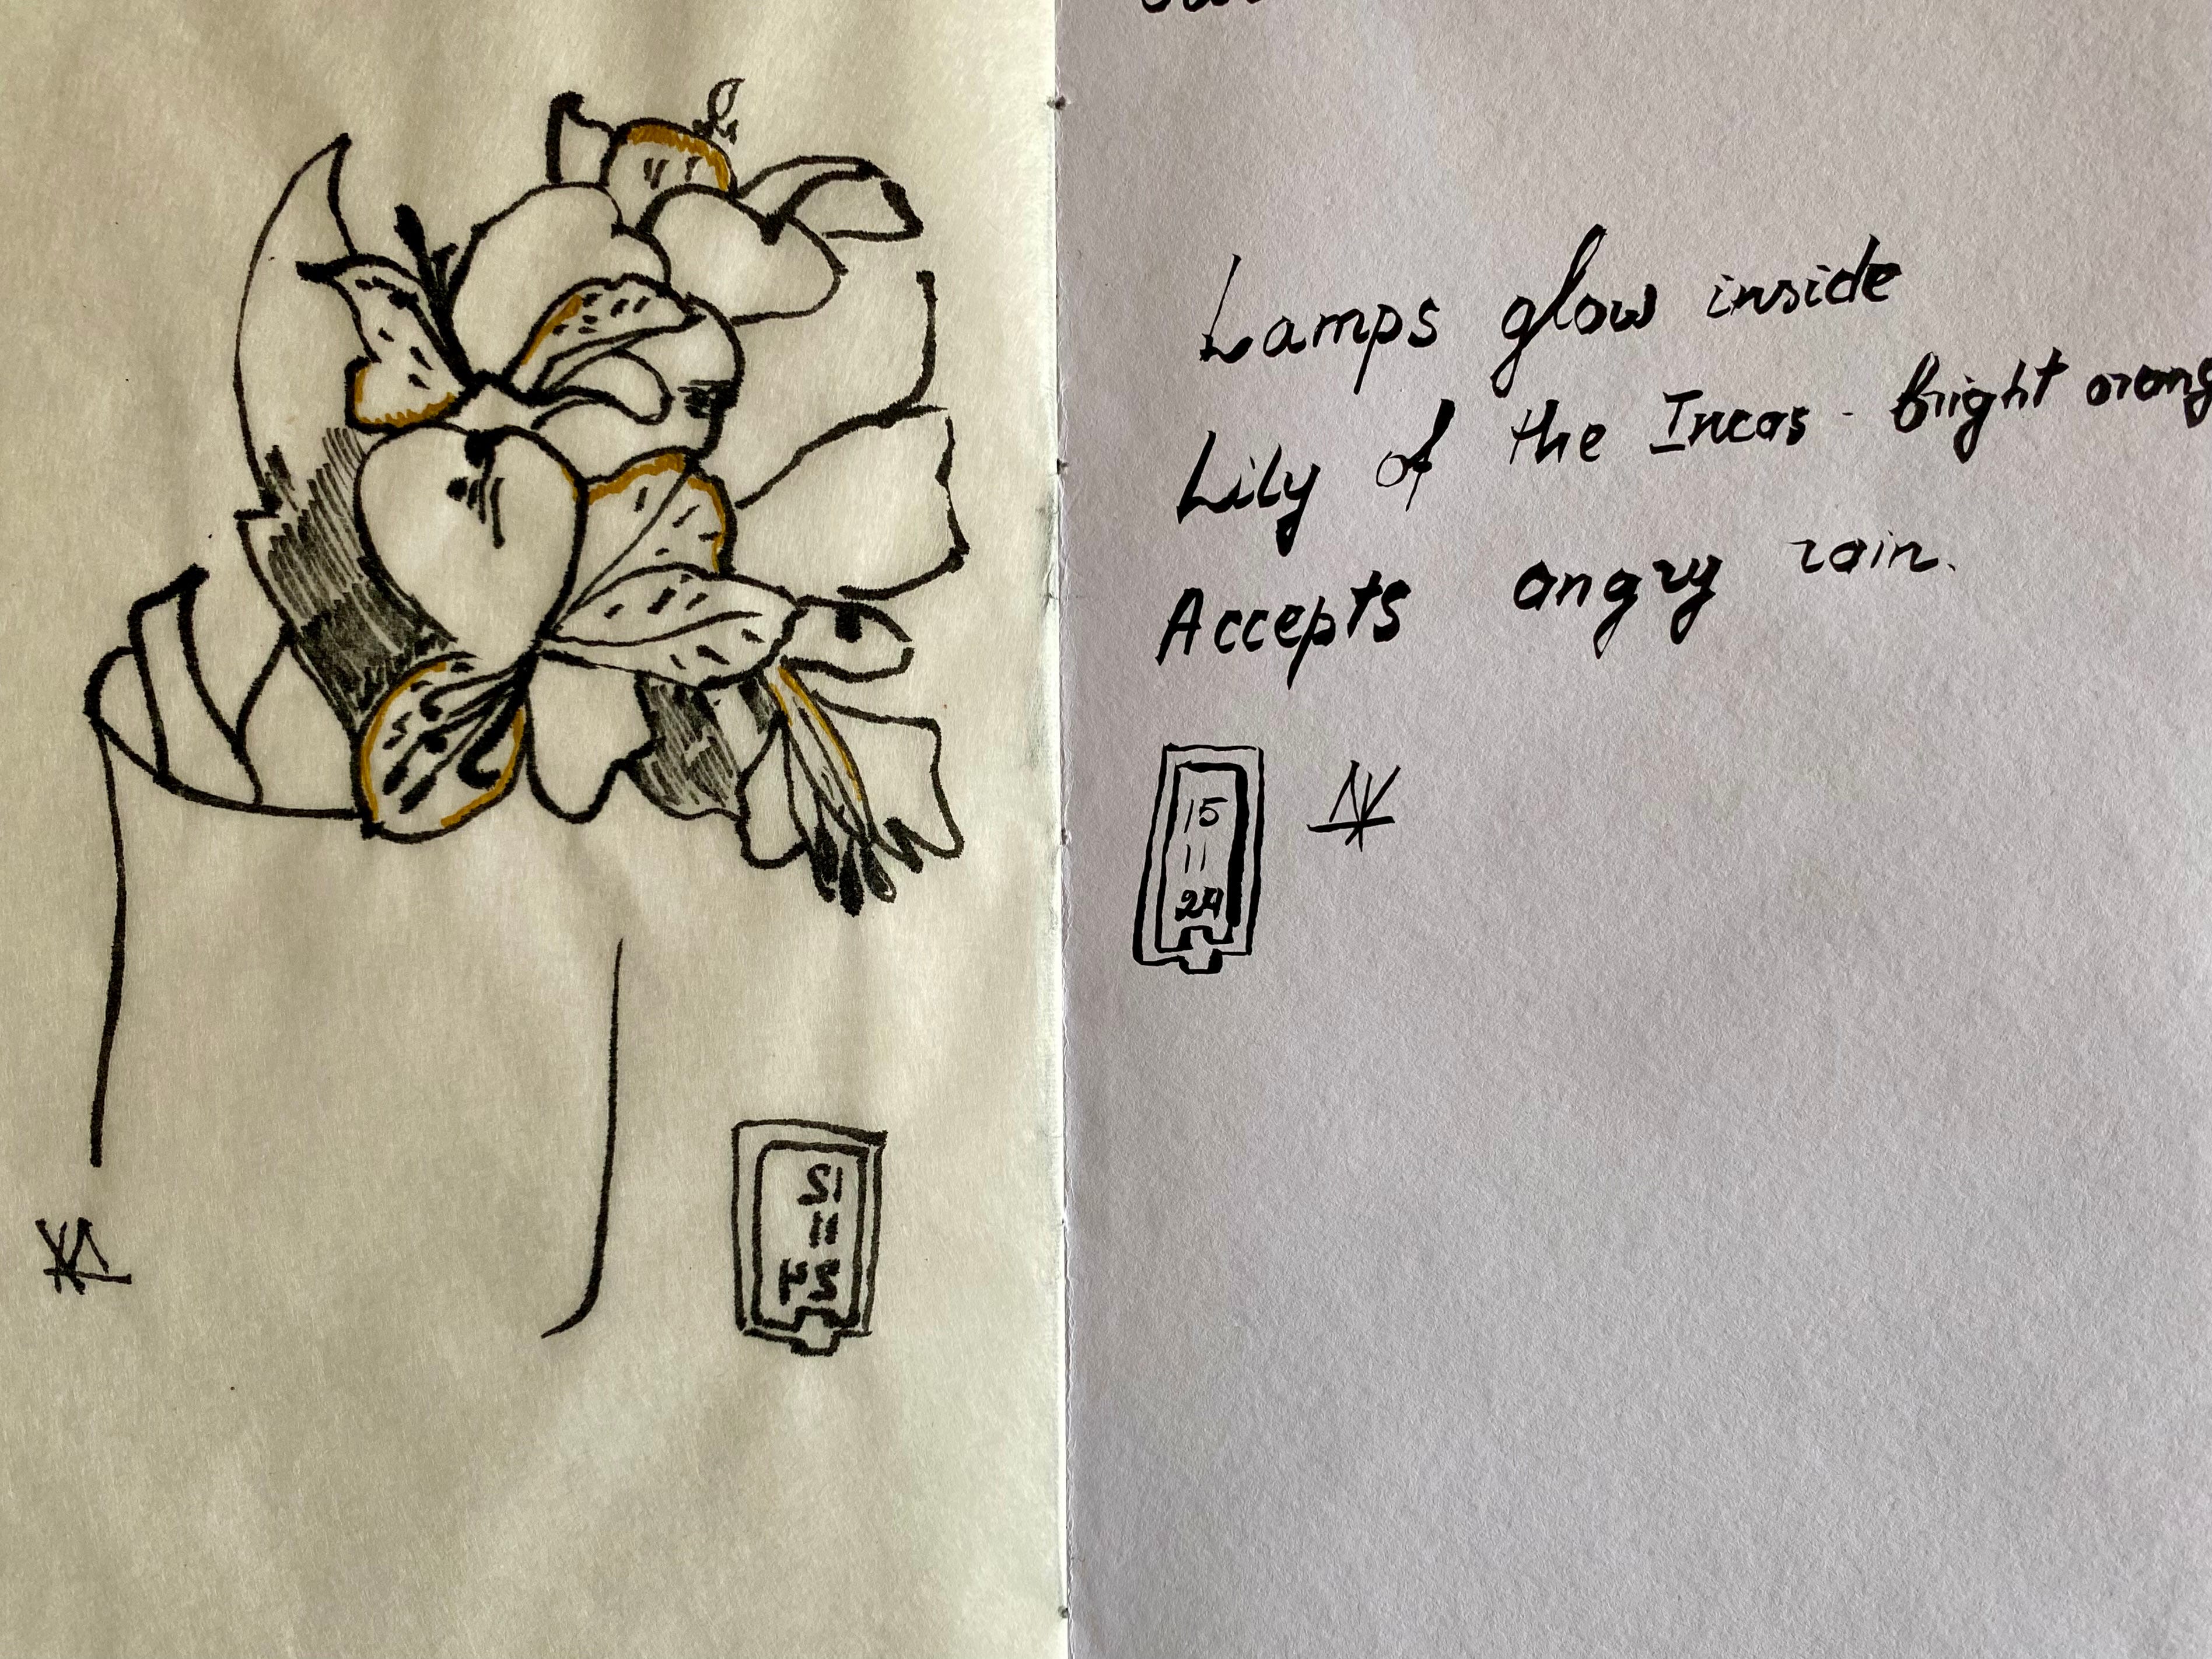 Lamps glow inside
Lily of the Incas - bright orang
Accepts angry rain.
15
11
24
12
11
24